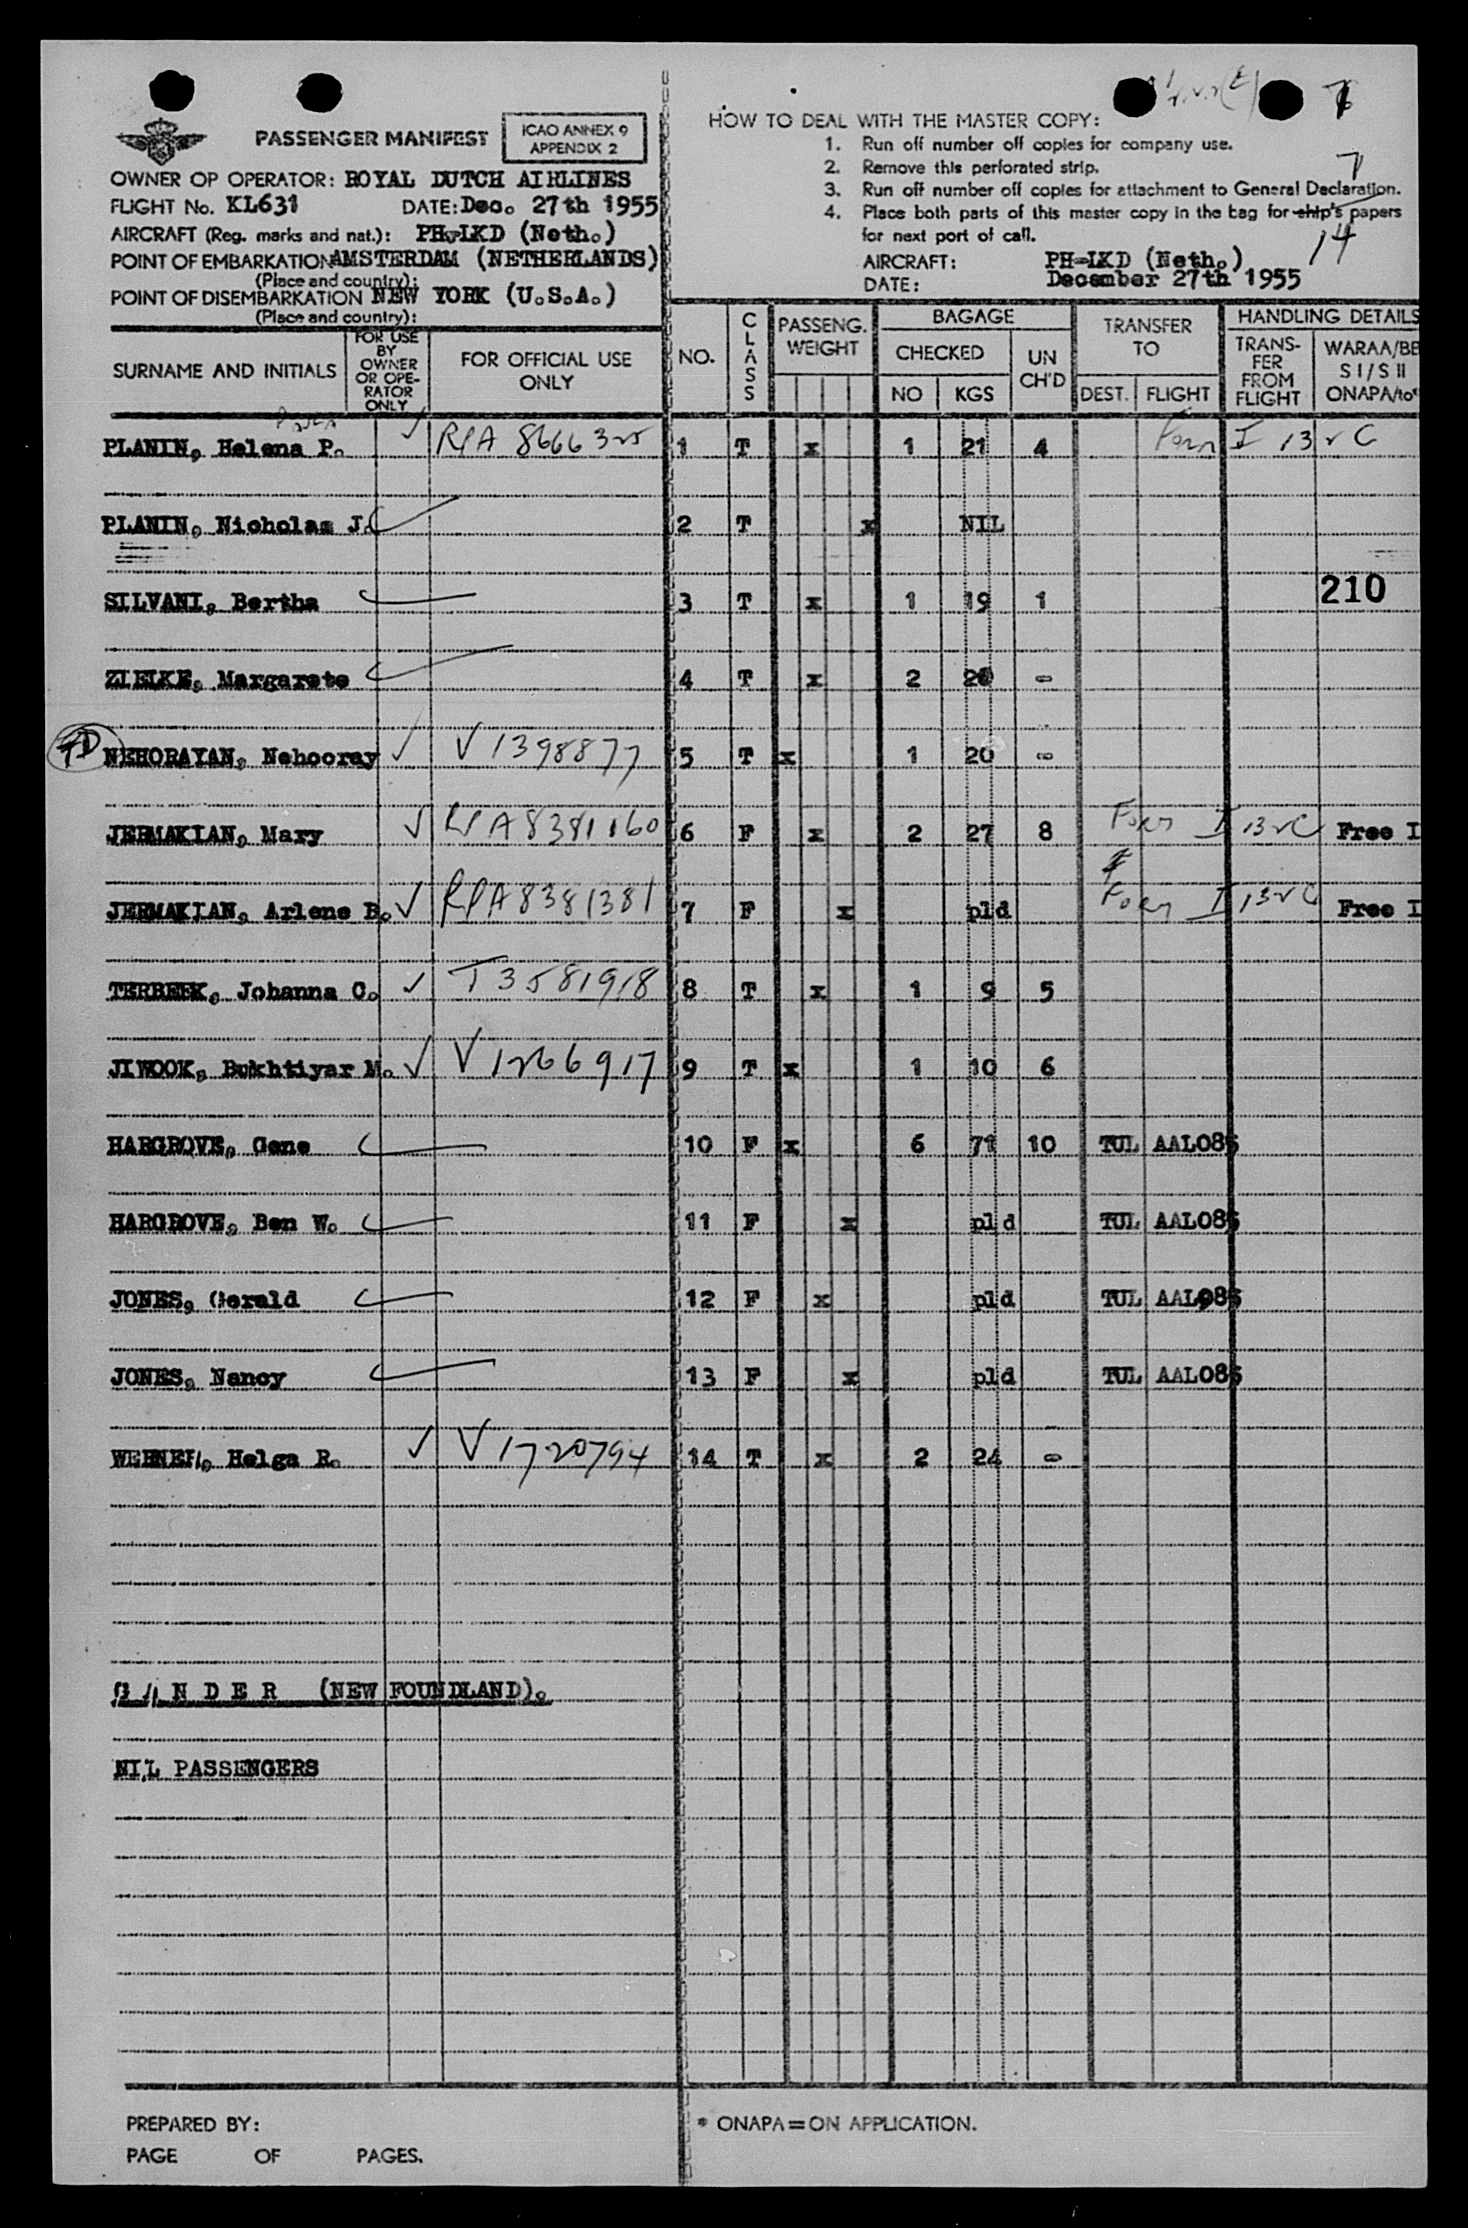 PASSENGER MANIFEST
ICAO ANNEX 9
APPENDIX 2
OWNER OP OPERATOR: ROYAL DUTCH AIRLINES
FLIGHT No. KL631 DATE: Dec. 27th 1955
AIRCRAFT (Reg. marks and nat.): PH-LKD (Neth.)
POINT OF EMBARKATION AMSTERDAM (NETHERLANDS)
(Place and country):
POINT OF DISEMBARKATION NEW YORK (U.S.A.)
(Place and country):
HOW TO DEAL WITH THE MASTER COPY:
1. Run off number off copies for company use.
2. Remove this perforated strip.
3. Run off number off copies for attachment to General Declaration.
4. Place both parts of this master copy in the bag for ship's papers
for next port of call.
7
14
AIRCRAFT: PH-LKD (Neth.)
DATE: December 27th 1955
SURNAME AND INITIALS
FOR USE
BY
OWNER
OR OPE-
RATOR
ONLY
FOR OFFICIAL USE
ONLY
NO.
CLASS
PASSENG.
WEIGHT
BAGAGE
CHECKED
NO KGS
UN
CH'D
TRANSFER
TO
DEST. FLIGHT
HANDLING DETAILS
TRANS-
FER
FROM
FLIGHT
WARAA/BE
S I / S II
ONAPA/to*
PLANIN, Helena P. RPA 8666325 1 T x 1 21 4 Form I 132 C
PLANIN, Nicholas J. 2 T x NIL
SILVANI, Bertha 3 T x 1 19 1 210
ZIELKE, Margarete 4 T x 2 20 -
TD NEHORAYAN, Nehooray V 1398877 5 T x 1 20 -
JERMAKIAN, Mary RPA 8381160 6 F x 2 27 8 Form I 132 C Free I
JERMAKIAN, Arlene B. RPA 8381381 7 F x pld Form I 132 C Free I
TERBEEK, Johanna C. T 3581918 8 T x 1 9 5
JIWOOK, Bukhtiyar M. V 1266917 9 T x 1 10 6
HARGROVE, Gene 10 F x 6 71 10 TUL AAL085
HARGROVE, Ben W. 11 F x pld TUL AAL085
JONES, Gerald 12 F x pld TUL AAL085
JONES, Nancy 13 F x pld TUL AAL085
WERNER, Helga R. V 1720794 14 T x 2 24 -
G A N D E R (NEW FOUNDLAND).
NIL PASSENGERS
PREPARED BY:
PAGE OF PAGES.
* ONAPA=ON APPLICATION.